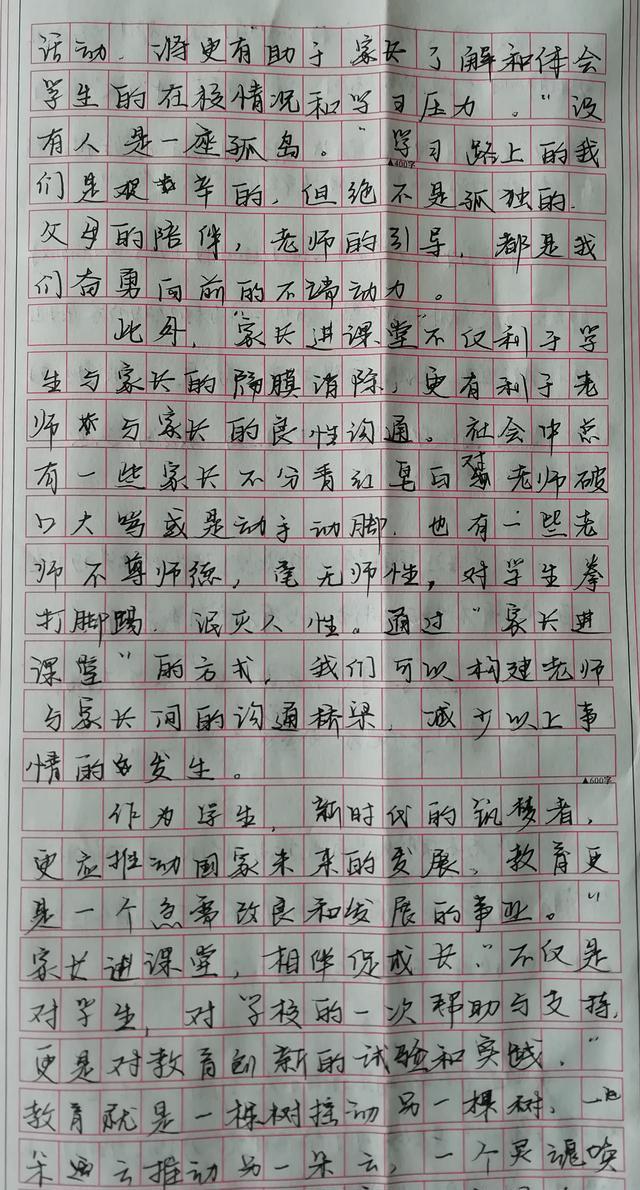 活动，将更有助于家长了解和体会
学生的在校情况和学习压力。“没
有人是一座孤岛。”学习路上的我
▲400字
们是艰辛的，但绝不是孤独的．
父母的陪伴，老师的引导，都是我
们奋勇向前的不端动力。
此外，“家长进课堂”不仅利于学
生与家长的隔膜消除，更有利于老
师与家长的良性沟通。社会中总
有一些家长不分青红皂白对老师破
口大骂或是动手动脚．也有一些老
师不尊师德，毫无师性，对学生拳
打脚踢．泯灭人性。通过“家长进
课堂”的方式，我们可以构建老师
与家长间的沟通桥梁，减少以上事
情的发生。
▲600字
作为学生，新时代的筑梦者，
更应推动国家未来的发展，教育更
是一个急需改良和发展的事业。“
家长进课堂，相伴促成长”不仅是
对学生，对学校的一次帮助与支持，
更是对教育创新的试验和实践．“
教育就是一棵树摇动另一棵树，一
朵云推动另一朵云，一个灵魂唤